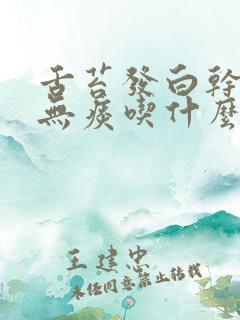 舌苔發白幹
無痰喫什麼
王建忠
未經同意禁止轉載